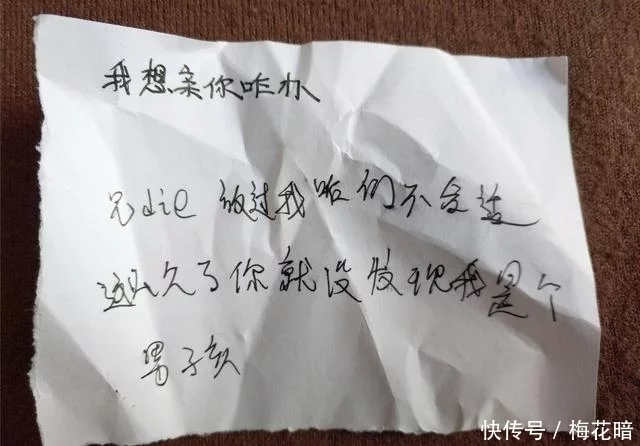 我想亲你咋办
兄die 放过我 咱们不合适
这么久了你就没发现我是个
男子孩
快传号/梅花暗